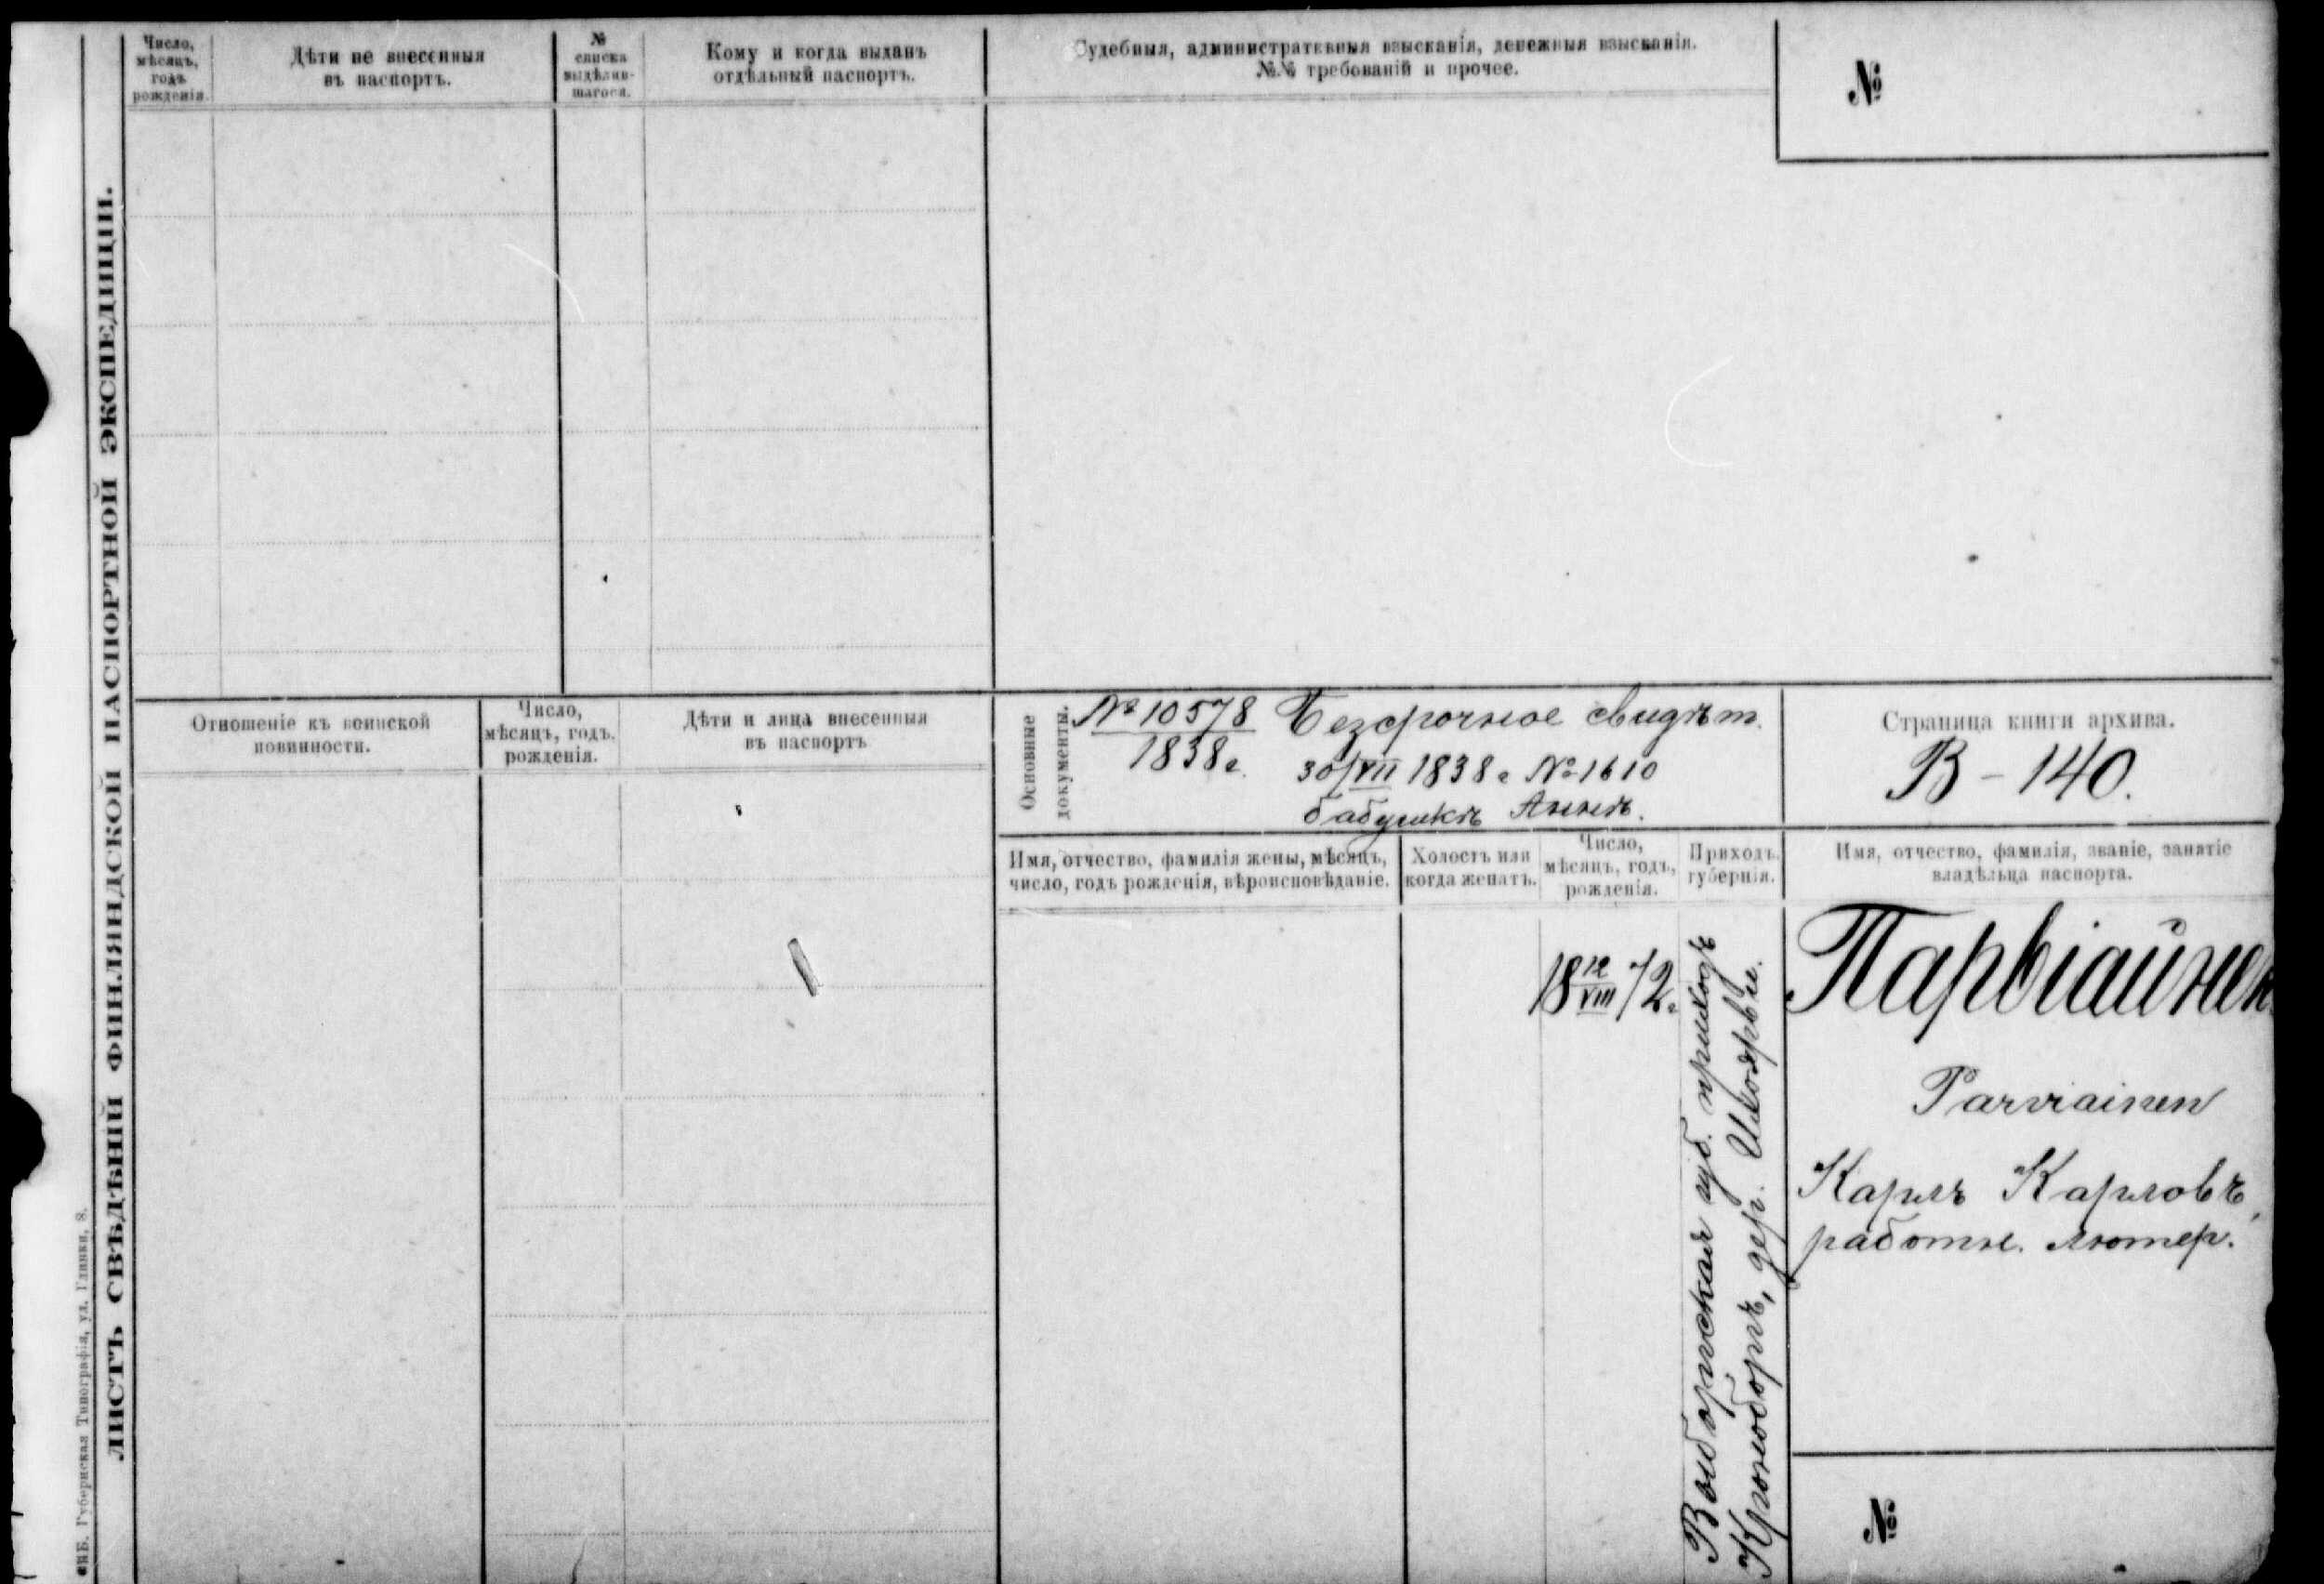 ЛИСТЪ СВѢДѢНІЙ ФИНЛЯНДСКОЙ ПАСПОРТНОЙ ЭКСПЕДИЦІИ.
СПБ. Губернская Типографія, ул. Глинки, 8.
Число,
мѣсяцъ,
годъ
рожденія.
Дѣти не внесенныя
въ паспортъ.
№
списка
выдѣлив-
шагося.
Кому и когда выданъ
отдѣльный паспортъ.
Судебныя, административныя взысканія, денежныя взысканія.
№№ требованій и прочее.
№
Отношеніе къ воинской
повинности.
Число,
мѣсяцъ, годъ.
рожденія.
Дѣти и лица внесенныя
въ паспортъ
Основные
документы.
№ 10578
1838 г.
Безсрочное свидѣт.
30/VII 1838 г № 1610
бабушкѣ Аннѣ.
Страница книги архива.
В – 140.
Имя, отчество, фамилія жены, мѣсяцъ,
число, годъ рожденія, вѣроисповѣданіе.
Холостъ или
когда женатъ.
Число,
мѣсяцъ, годъ,
рожденія.
Приходъ.
губернія.
Имя, отчество, фамилія, званіе, занятіе
владѣльца паспорта.
18 12/VIII 72 г
Выборгская губ. приходъ
Кроноборгъ, дер. Ихоярви.
Парвіайнен
Parviainen
Карлъ Карловъ,
работн. лютер.
№